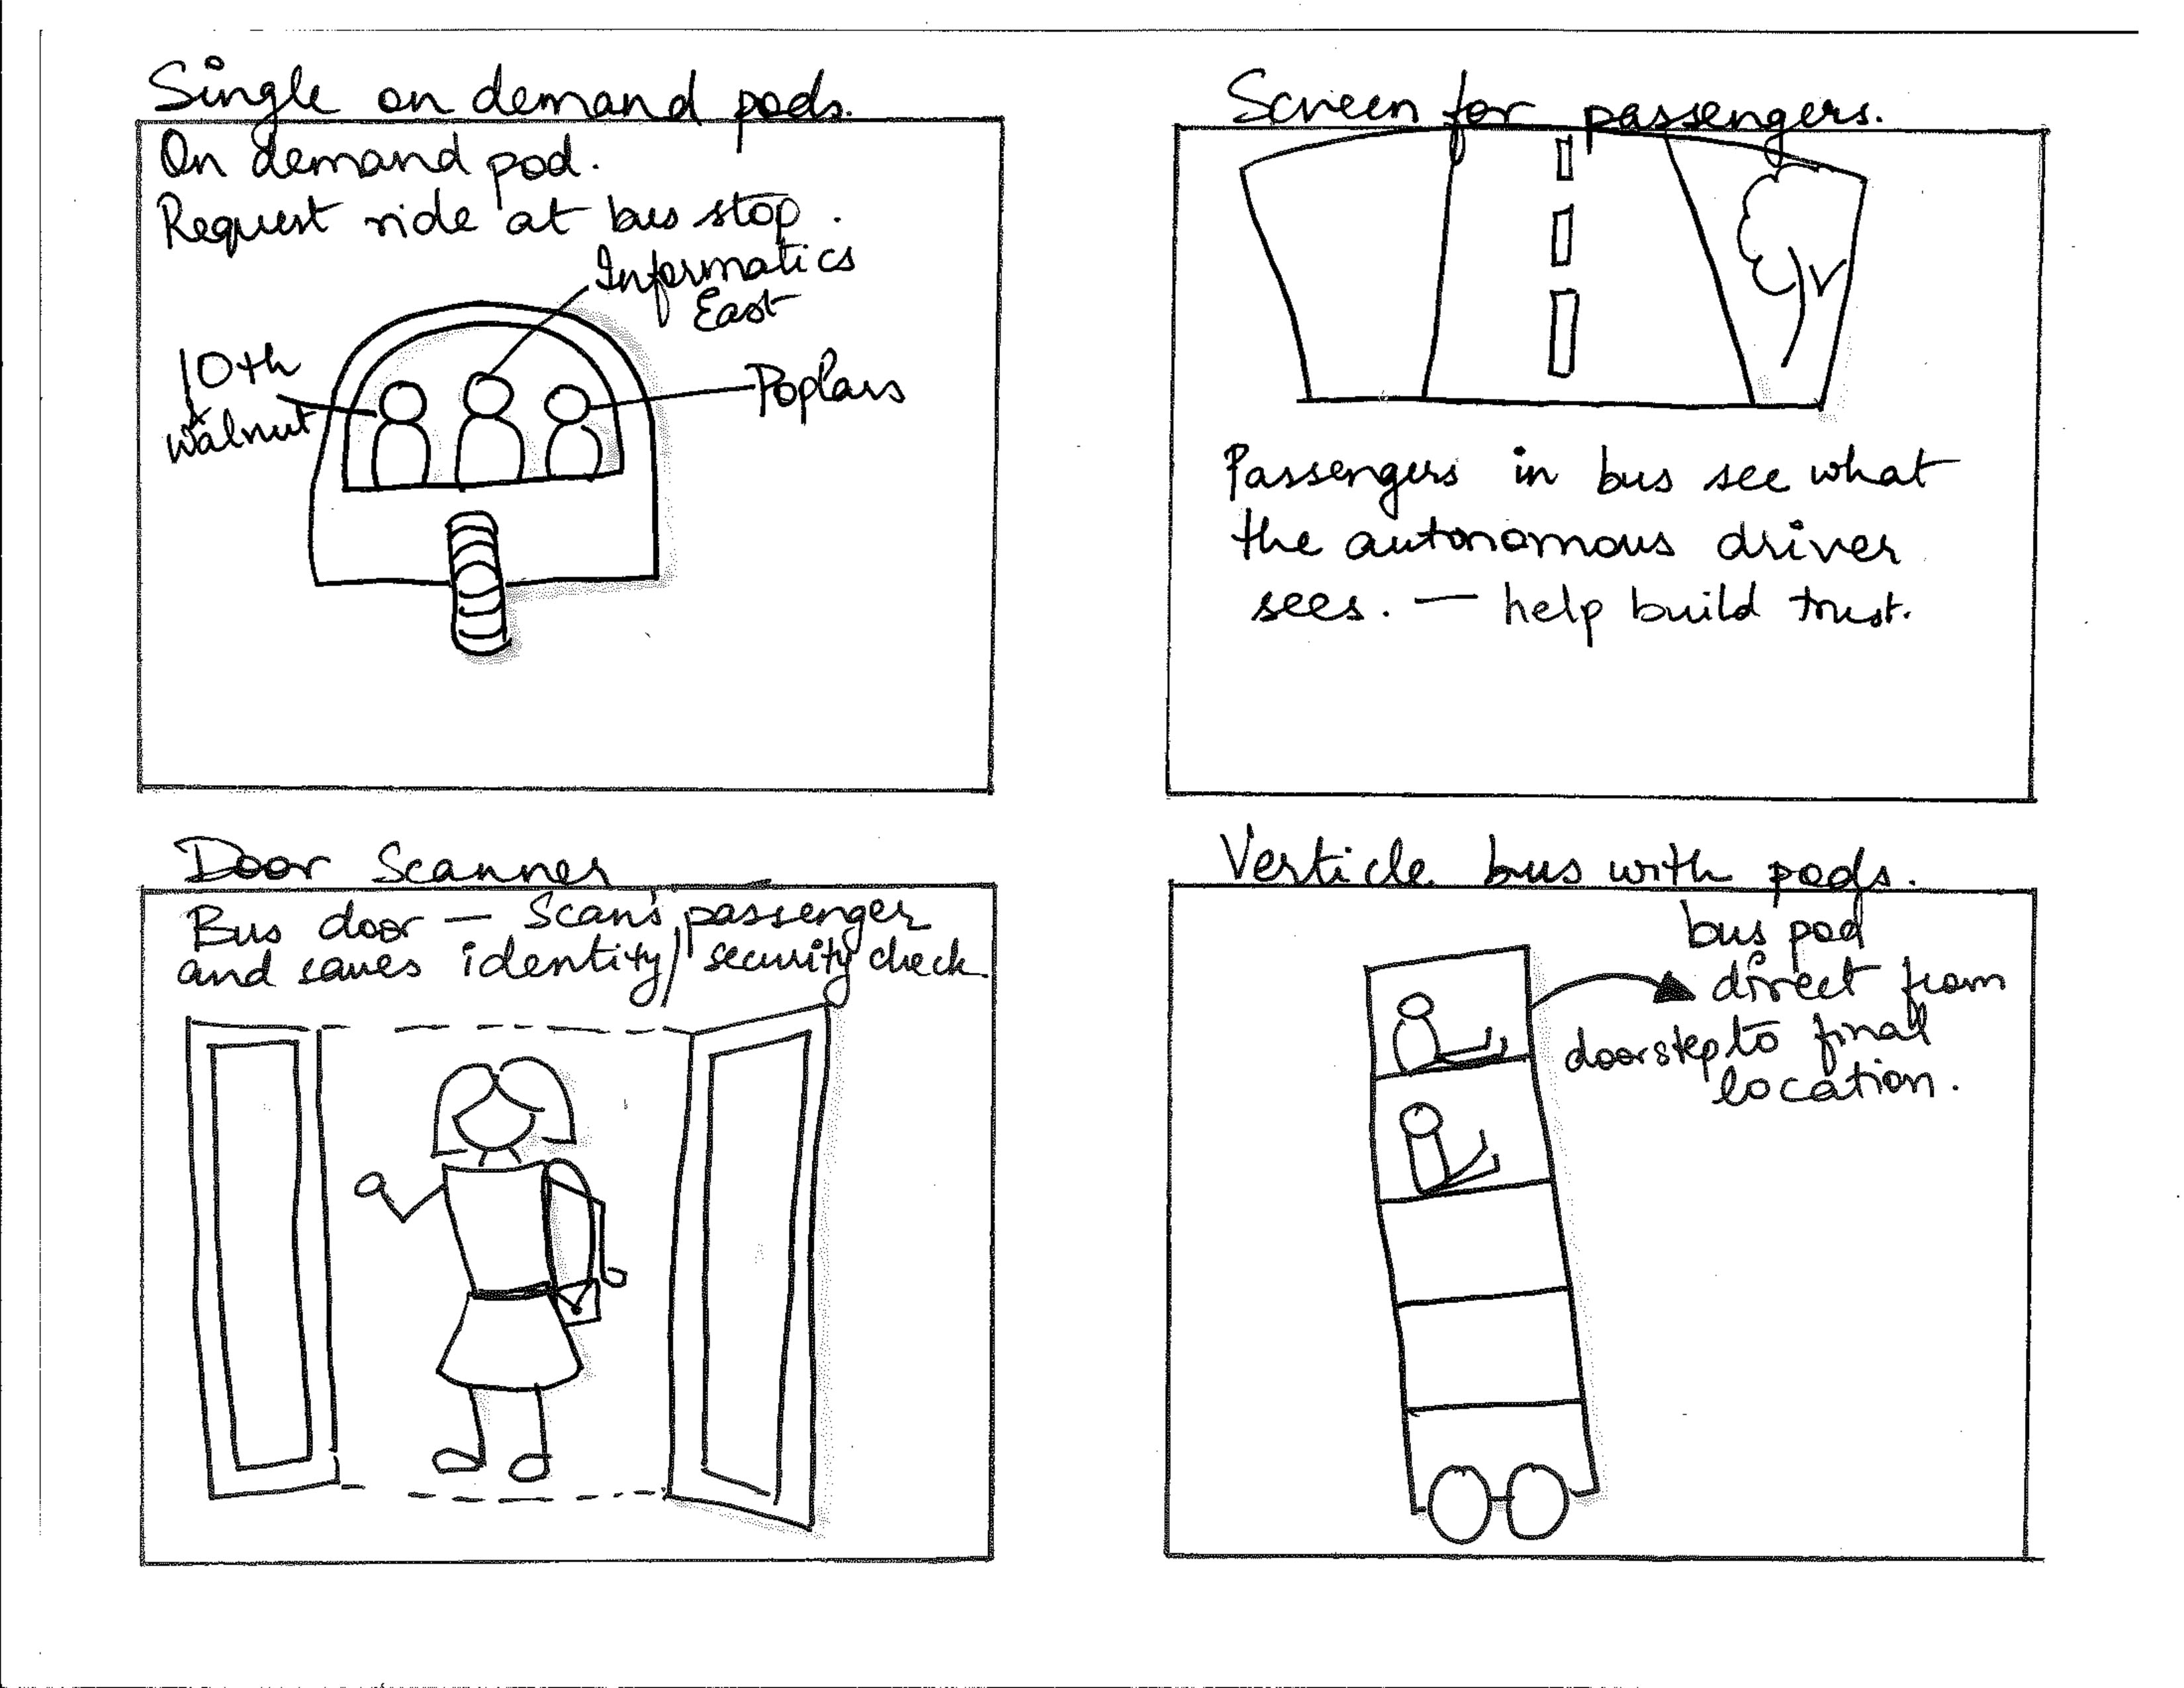 Single on demand pods.
On demand pod.
Request ride at bus stop.
Informatics
East
10th
&
Walnut
Poplars
Screen for passengers.
Passengers in bus see what
the autonomous driver
sees. — help build trust.
Door Scanner
Bus door — Scans passenger
and saves identity/security check.
Verticle bus with pods.
bus pod
direct from
doorstep to final
location.